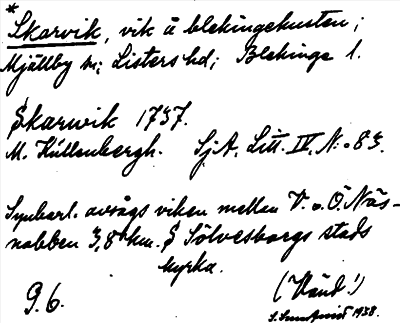 * Skarvik, vik å blekingekusten;
Mjällby sn; Listers hd; Blekinge l.
Skarwik 1737.
M. Küllenbergh. SjA. Litt. IV. N:o 83.
Synbarl. avsågs viken mellan V. o. Ö. Näs-
nabben 3,8 km. S Sölvesborgs stads
kyrka.
9.6. (Vänd!)
1938.